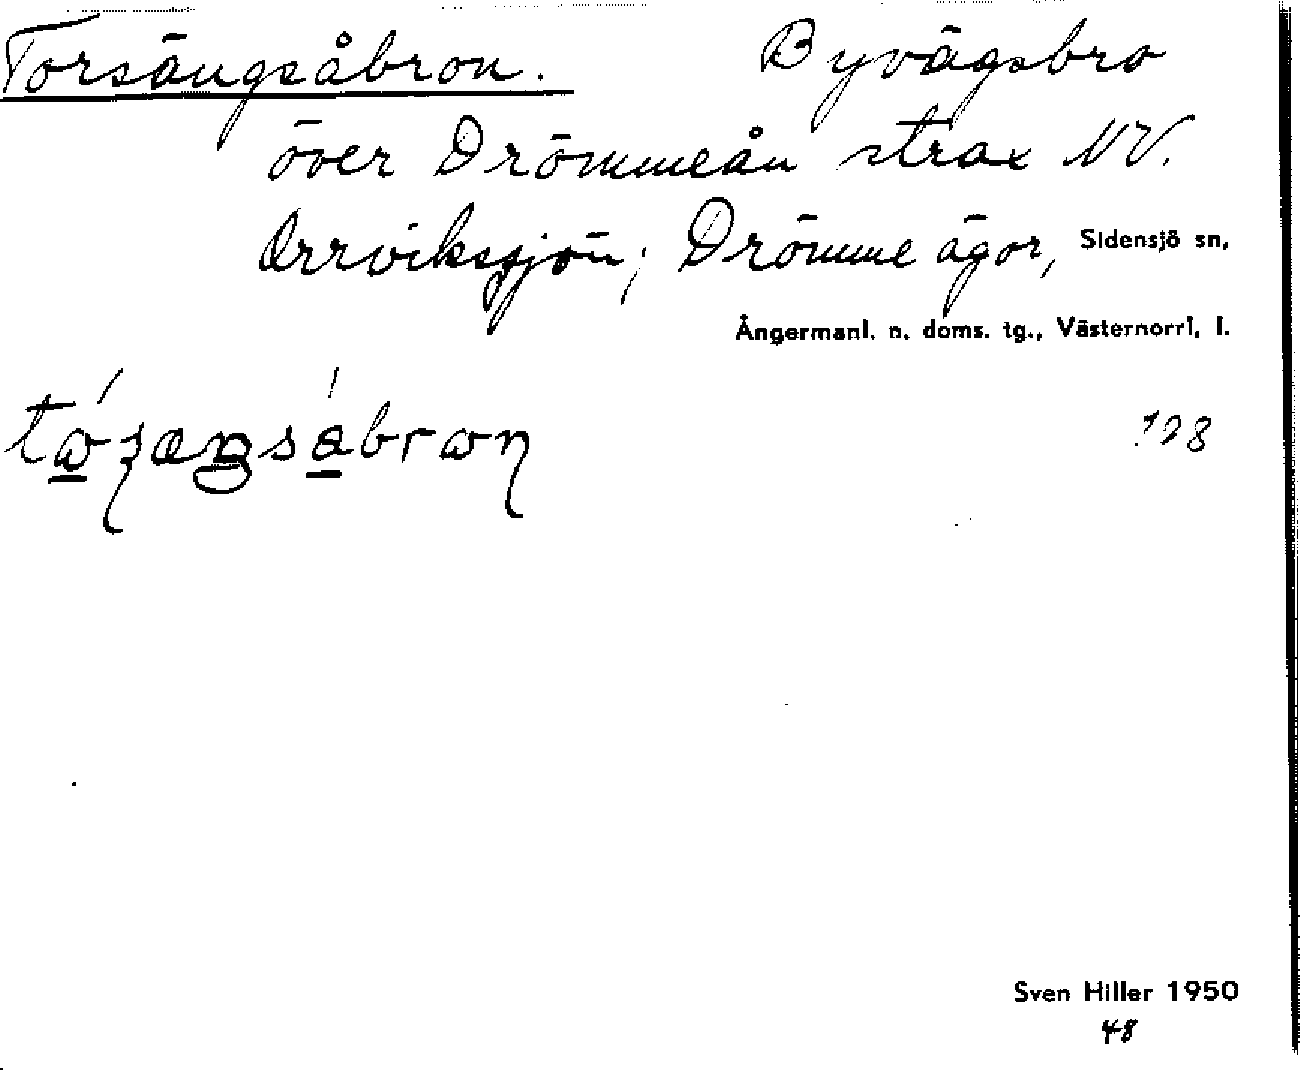 Torsängsåbron. Byvägsbro
över Drömmeån strax NV.
Orrvikssjön; Drömme ägor, Sidensjö sn,
Ångermanl. n. doms. tg., Västernorrl. l.
128
Sven Hiller 1950
48